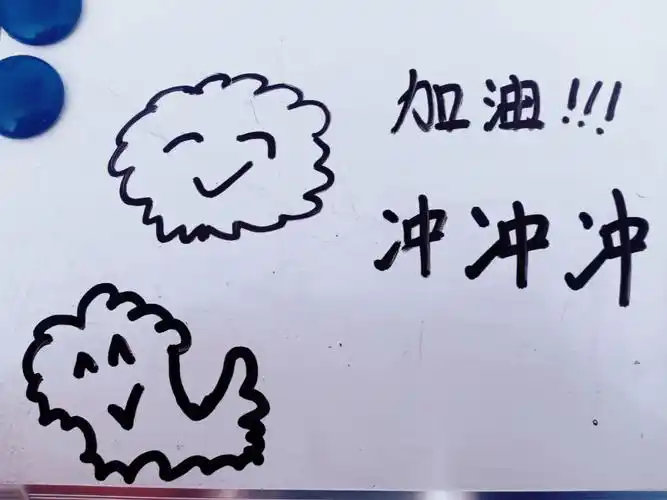 加油!!!
冲冲冲